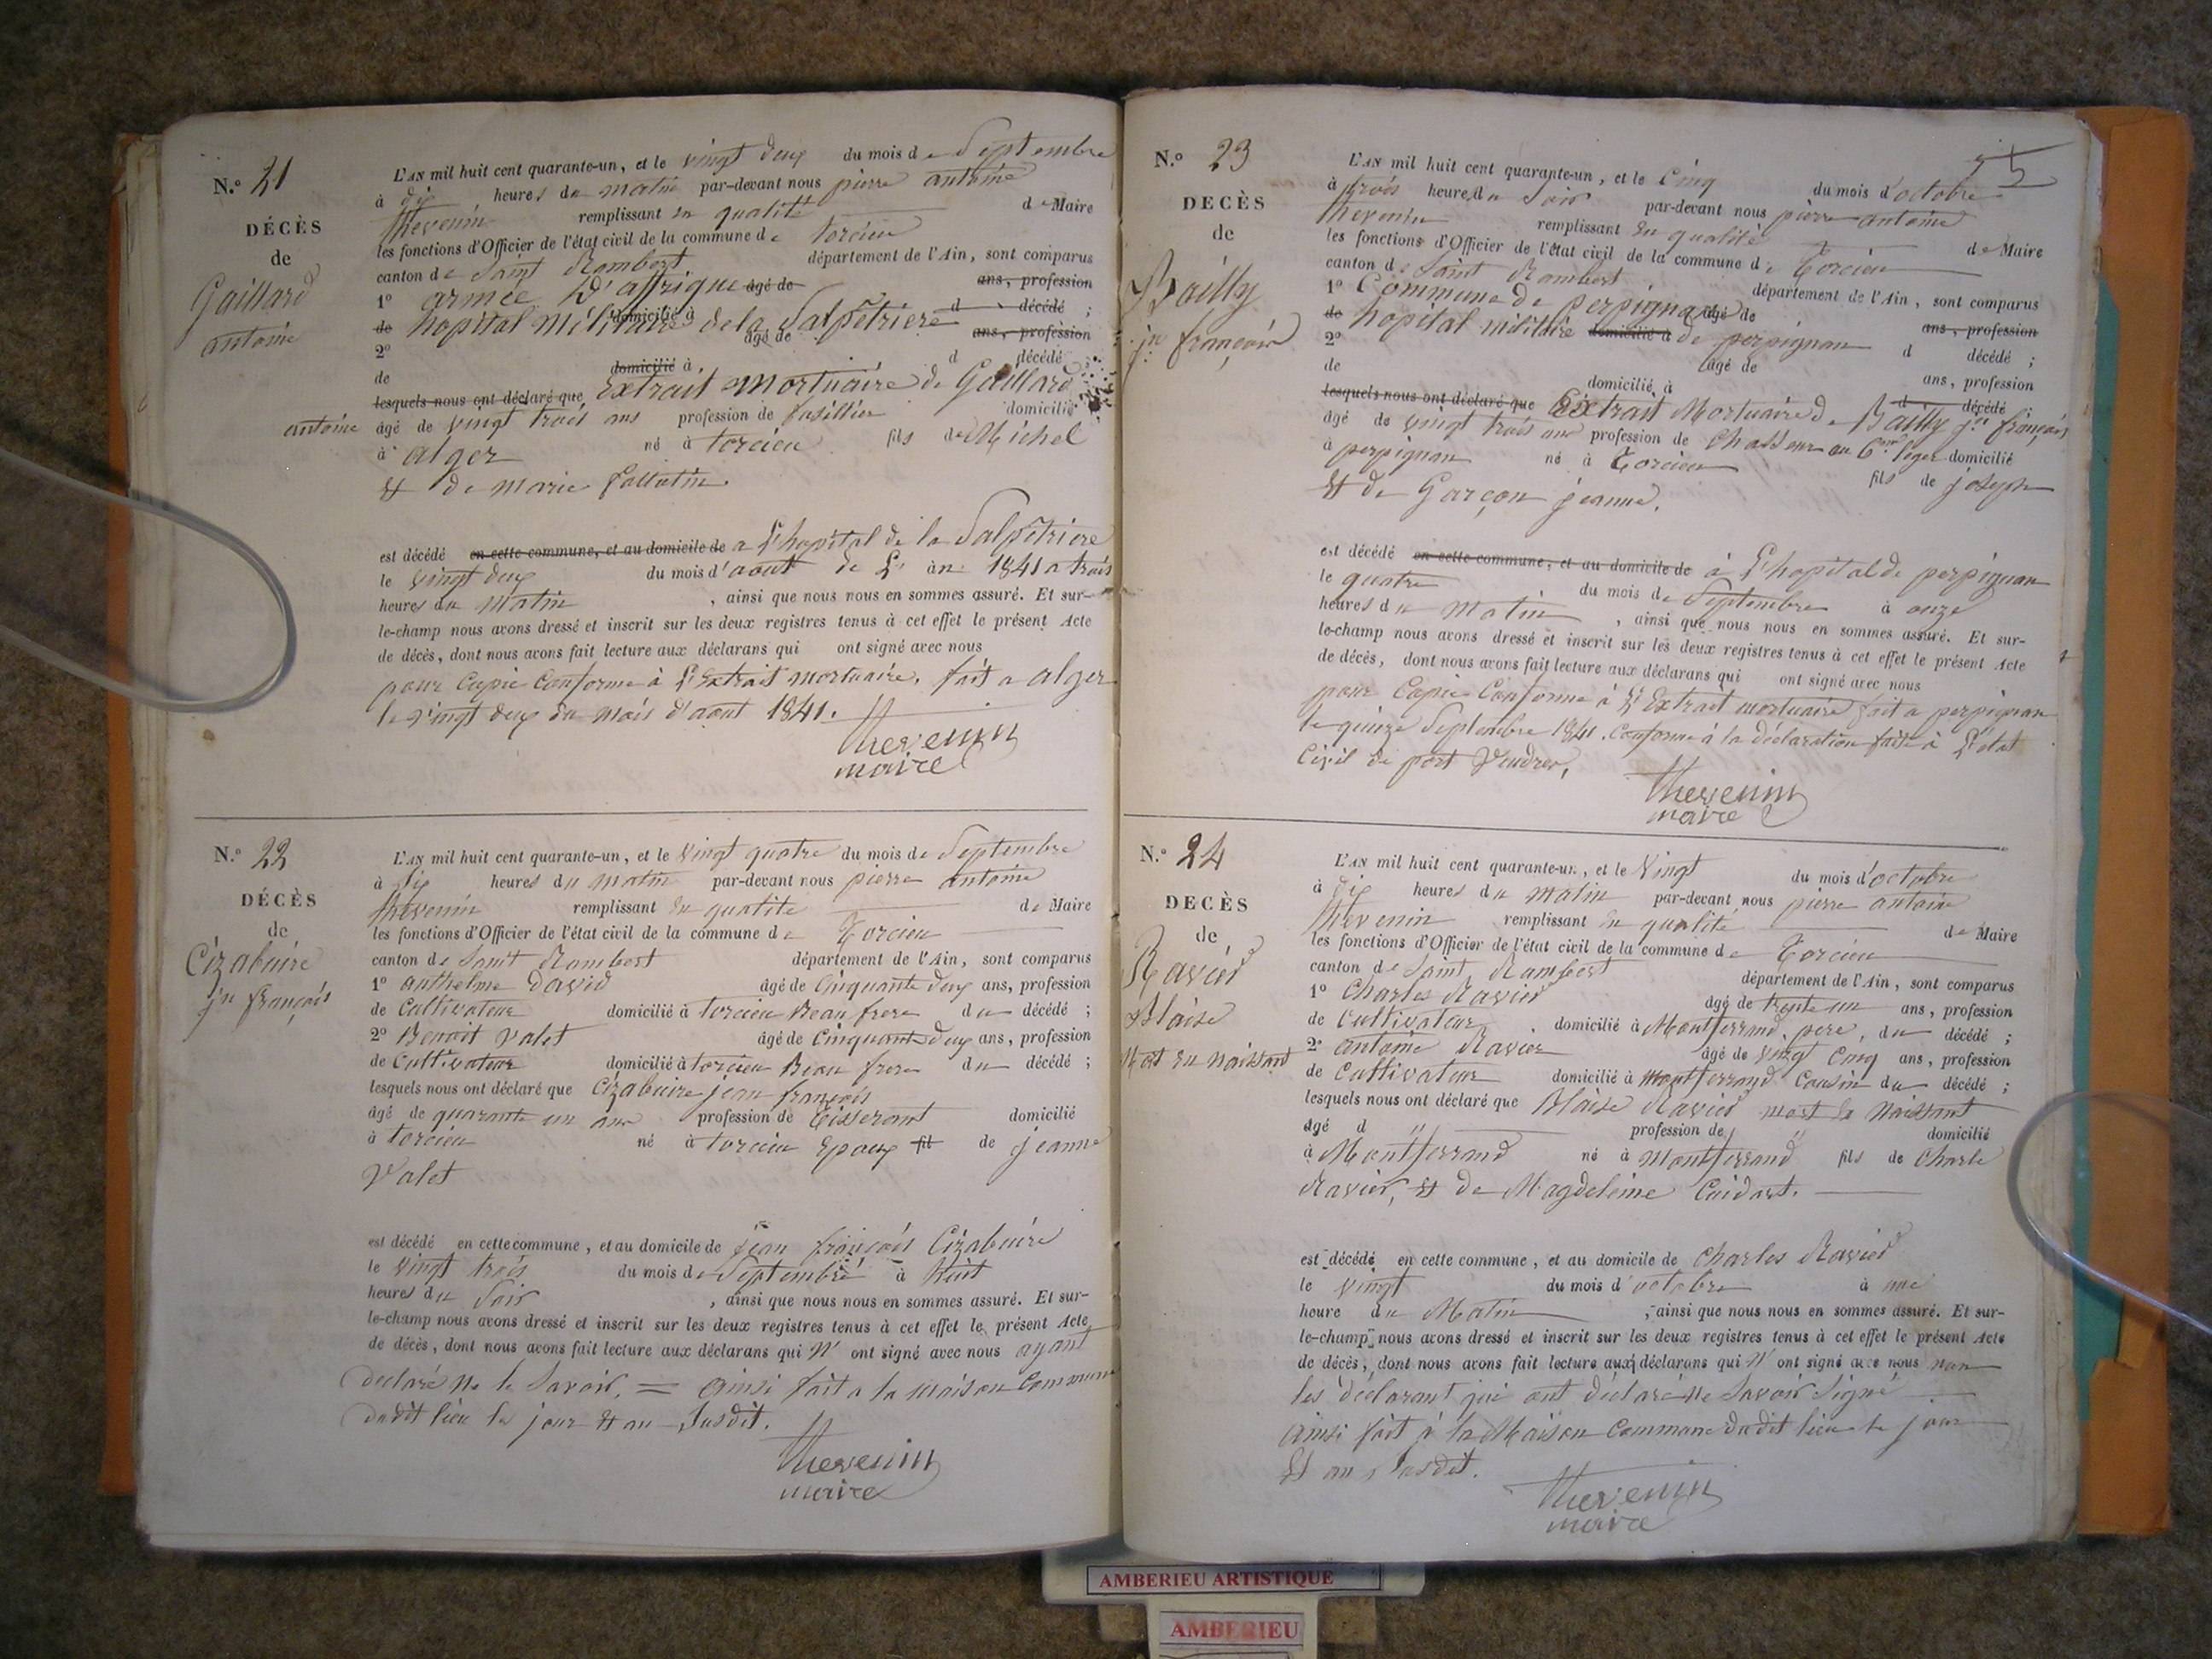 N.° 21
DÉCÈS
de
Gaillard
antoine
L'AN mil huit cent quarante-un, et le vingt deux du mois de Septembre
à dix heures du matin par-devant nous pierre antoine
thevenin remplissant en qualité de Maire
les fonctions d'Officier de l'état civil de la commune de torcieu
canton de Saint Rambert département de l'Ain, sont comparus
1° armée D'affrique âgé de ans, profession
de hopital Militaire domicilié à de la Salpétriere d décédé ;
2° âgé de ans, profession
de domicilié à d décédé
lesquels nous ont déclaré que Extrait Mortuaire de Gaillard
antoine âgé de vingt trois ans profession de fusillier domicilié
à alger né à torcieu fils de Michel
Et de Marie
est décédé en cette commune, et au domicile de a L'hopital de la Salpétriere
le vingt deux du mois d'aout de L'an 1841 a trois
heures du Matin , ainsi que nous nous en sommes assuré. Et sur-
le-champ nous avons dressé et inscrit sur les deux registres tenus à cet effet le présent Acte
de décès, dont nous avons fait lecture aux déclarans qui ont signé avec nous
pour Copie Conforme à L'Extrait mortuaire. fait a alger
le vingt deux du mois d'aout 1841.
thevenin
maire
N.° 22
DÉCÈS
de
Cizabuire
jn françois
L'AN mil huit cent quarante-un, et le vingt quatre du mois de Septembre
à dix heures du matin par-devant nous pierre antoine
thevenin remplissant en qualité de Maire
les fonctions d'Officier de l'état civil de la commune de Torcieu
canton de Saint Rambert département de l'Ain, sont comparus
1° anthelme David âgé de Cinquante deux ans, profession
de Cultivateur domicilié à torcieu Beau frere du décédé ;
2° Benoit Valet âgé de Cinquante deux ans, profession
de Cultivateur domicilié à torcieu Beau frere du décédé ;
lesquels nous ont déclaré que Cizabuire jean françois
âgé de quarante un ans profession de Tisserant domicilié
à torcieu né à torcieu Epoux fil de jeanne
Valet
est décédé en cette commune, et au domicile de jean françois Cizabuire
le vingt trois du mois de Septembre à huit
heures du Soir , ainsi que nous nous en sommes assuré. Et sur-
le-champ nous avons dressé et inscrit sur les deux registres tenus à cet effet le présent Acte
de décès, dont nous avons fait lecture aux déclarans qui N' ont signé avec nous ayant
declaré Ne le Savoir. = ainsi fait a la maison Commune
dudit lieu les jour Et an Susdit.
thevenin
maire
5
N.° 23
DECÈS
de
Bailly
jn françois
L'AN mil huit cent quarante-un, et le Cinq du mois d'octobre
à trois heures du Soir par-devant nous pierre antoine
thevenin remplissant en qualité de Maire
les fonctions d'Officier de l'état civil de la commune de Torcieu
canton de Saint Rambert département de l'Ain, sont comparus
1° Commune de perpignan âgé de ans, profession
de hopital militaire domicilié à de perpignan d décédé ;
2° âgé de ans, profession
de domicilié à d décédé ;
lesquels nous ont déclaré que Extrait Mortuaire de Bailly jn françois
âgé de vingt trois ans profession de Chasseur au 6me léger domicilié
à perpignan né à Torcieu fils de joseph
Et de Garçon jeanne.
est décédé en cette commune, et au domicile de à L'hopital de perpignan
le quatre du mois de Septembre à onze
heures du Matin , ainsi que nous nous en sommes assuré. Et sur-
le-champ nous avons dressé et inscrit sur les deux registres tenus à cet effet le présent Acte
de décès, dont nous avons fait lecture aux déclarans qui ont signé avec nous
pour Copie Conforme à L'Extrait mortuaire fait a perpignan
le quinze Septembre 1841. Conforme à la déclaration faite à L'état
Civil de port Vendres,
thevenin
maire
N.° 24
DECÈS
de
Ravier
Blaise
Mort en naissant
L'AN mil huit cent quarante-un, et le Vingt du mois d'octobre
à dix heures du matin par-devant nous pierre antoine
thevenin remplissant en qualité de Maire
les fonctions d'Officier de l'état civil de la commune de Torcieu
canton de Saint Rambert département de l'Ain, sont comparus
1° Charles Ravier âgé de trente un ans, profession
de Cultivateur domicilié à Montferrand pere, du décédé ;
2° antoine Ravier âgé de vingt Cinq ans, profession
de Cultivateur domicilié à Montferrand Cousin du décédé ;
lesquels nous ont déclaré que Blaise Ravier mort en Naissant
âgé d " profession de " domicilié
à Montferrand né à Montferrand fils de Charle
Ravier, Et de Magdeleine Cuidart.
est décédé en cette commune, et au domicile de Charles Ravier
le vingt du mois d'octobre à une
heure du Matin , ainsi que nous nous en sommes assuré. Et sur-
le-champ nous avons dressé et inscrit sur les deux registres tenus à cet effet le présent Acte
de décès, dont nous avons fait lecture aux déclarans qui N' ont signé avec nous non
les déclarant qui ont déclaré Ne Savoir Signé
ainsi fait à la Maison Commune dudit lieu le jour
Et an Susdit.
thevenin
maire
AMBERIEU ARTISTIQUE
AMBERIEU